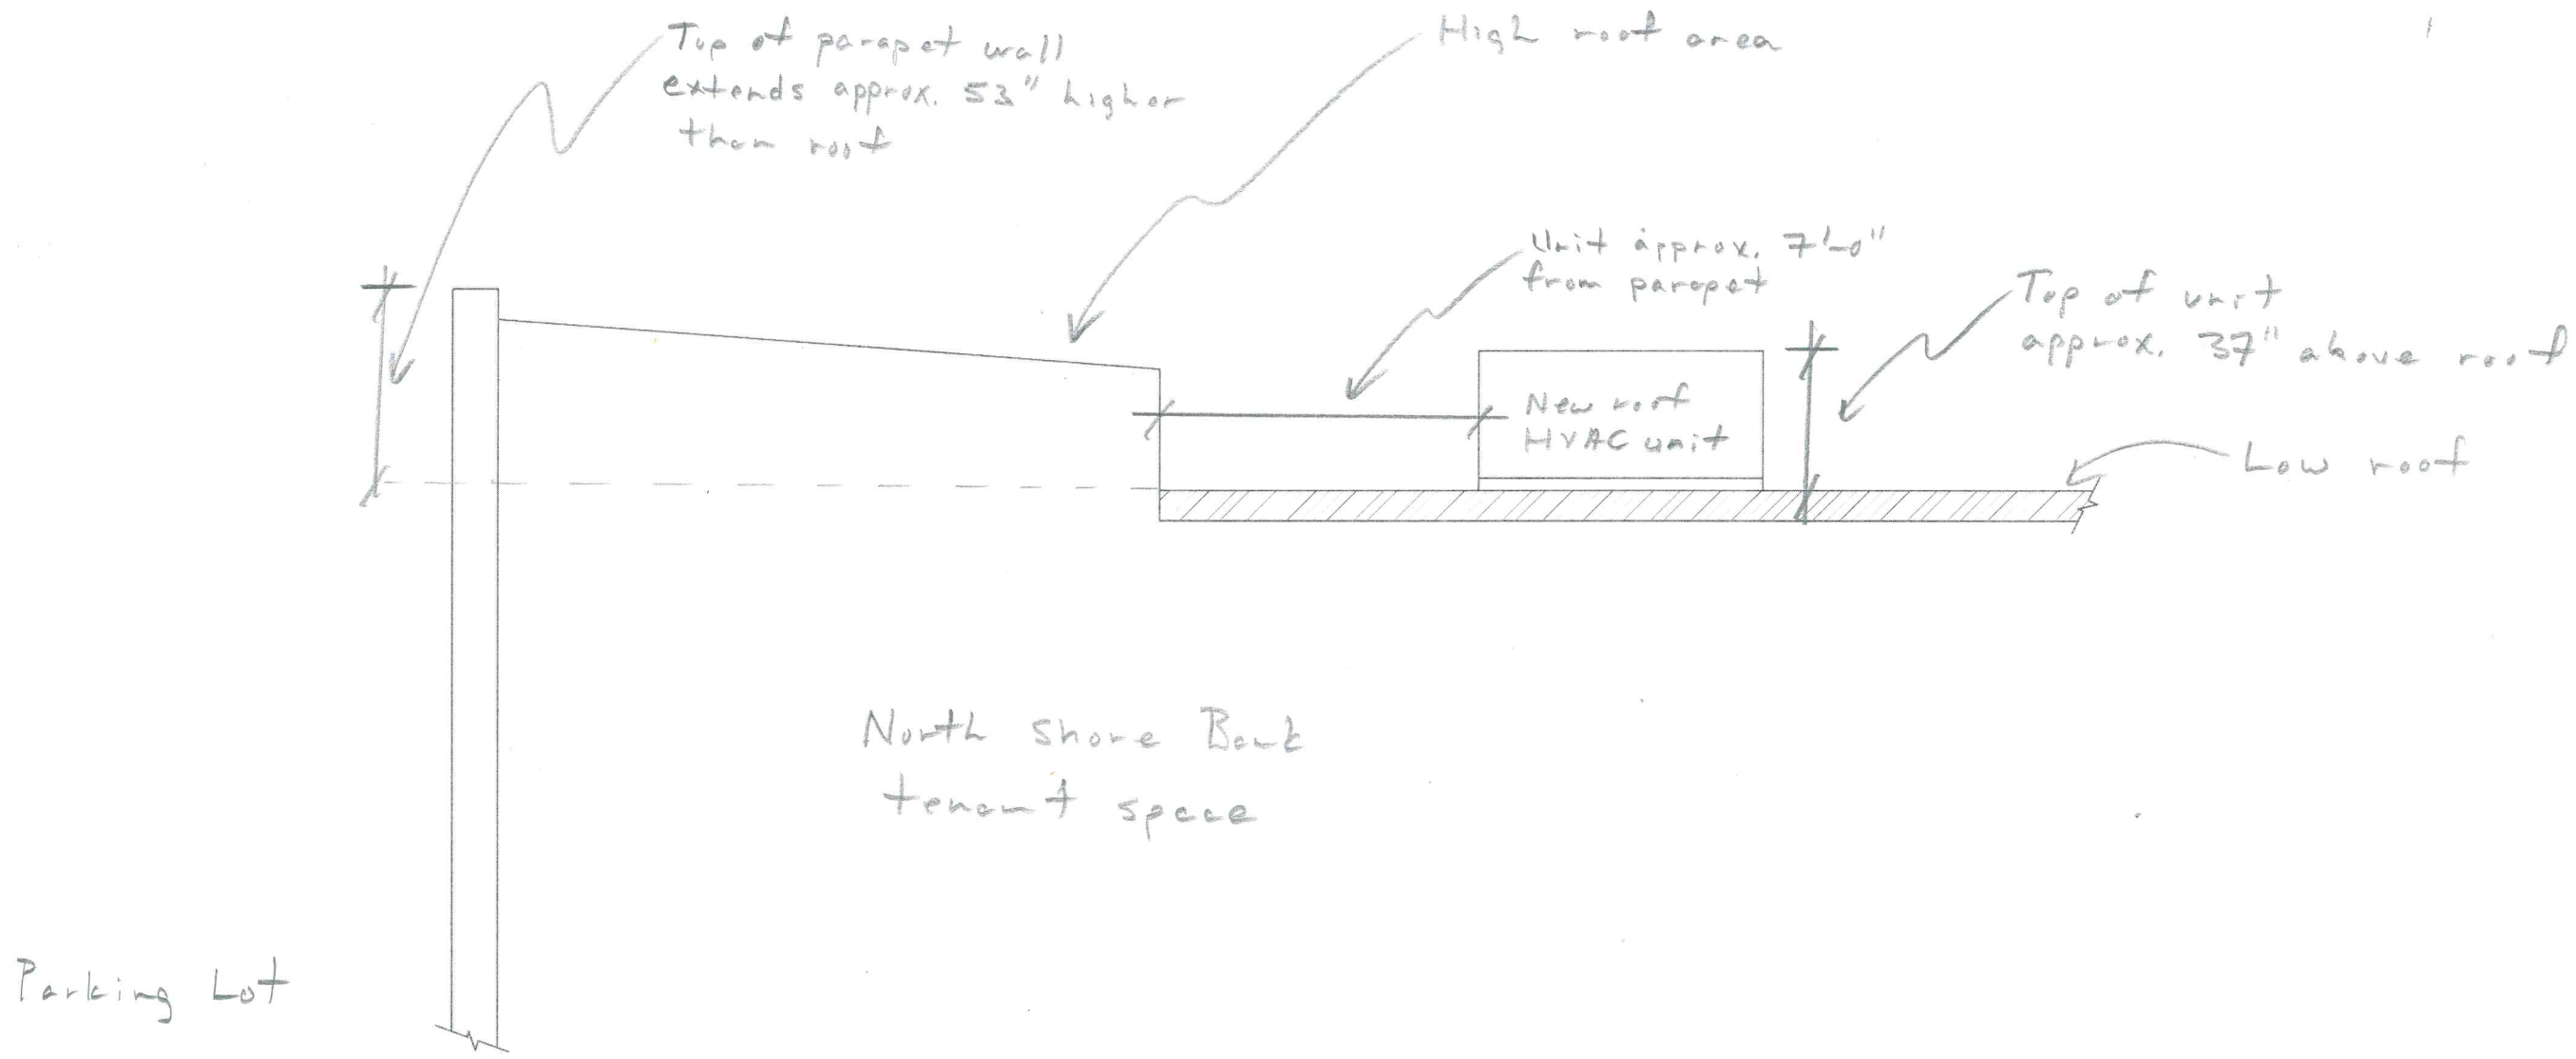 Top of parapet wall
extends approx. 53" higher
than roof
High roof area
Unit approx. 7'-0"
from parapet
Top of unit
approx. 37" above roof
New roof
HVAC unit
Low roof
North Shore Bank
tenant space
Parking Lot